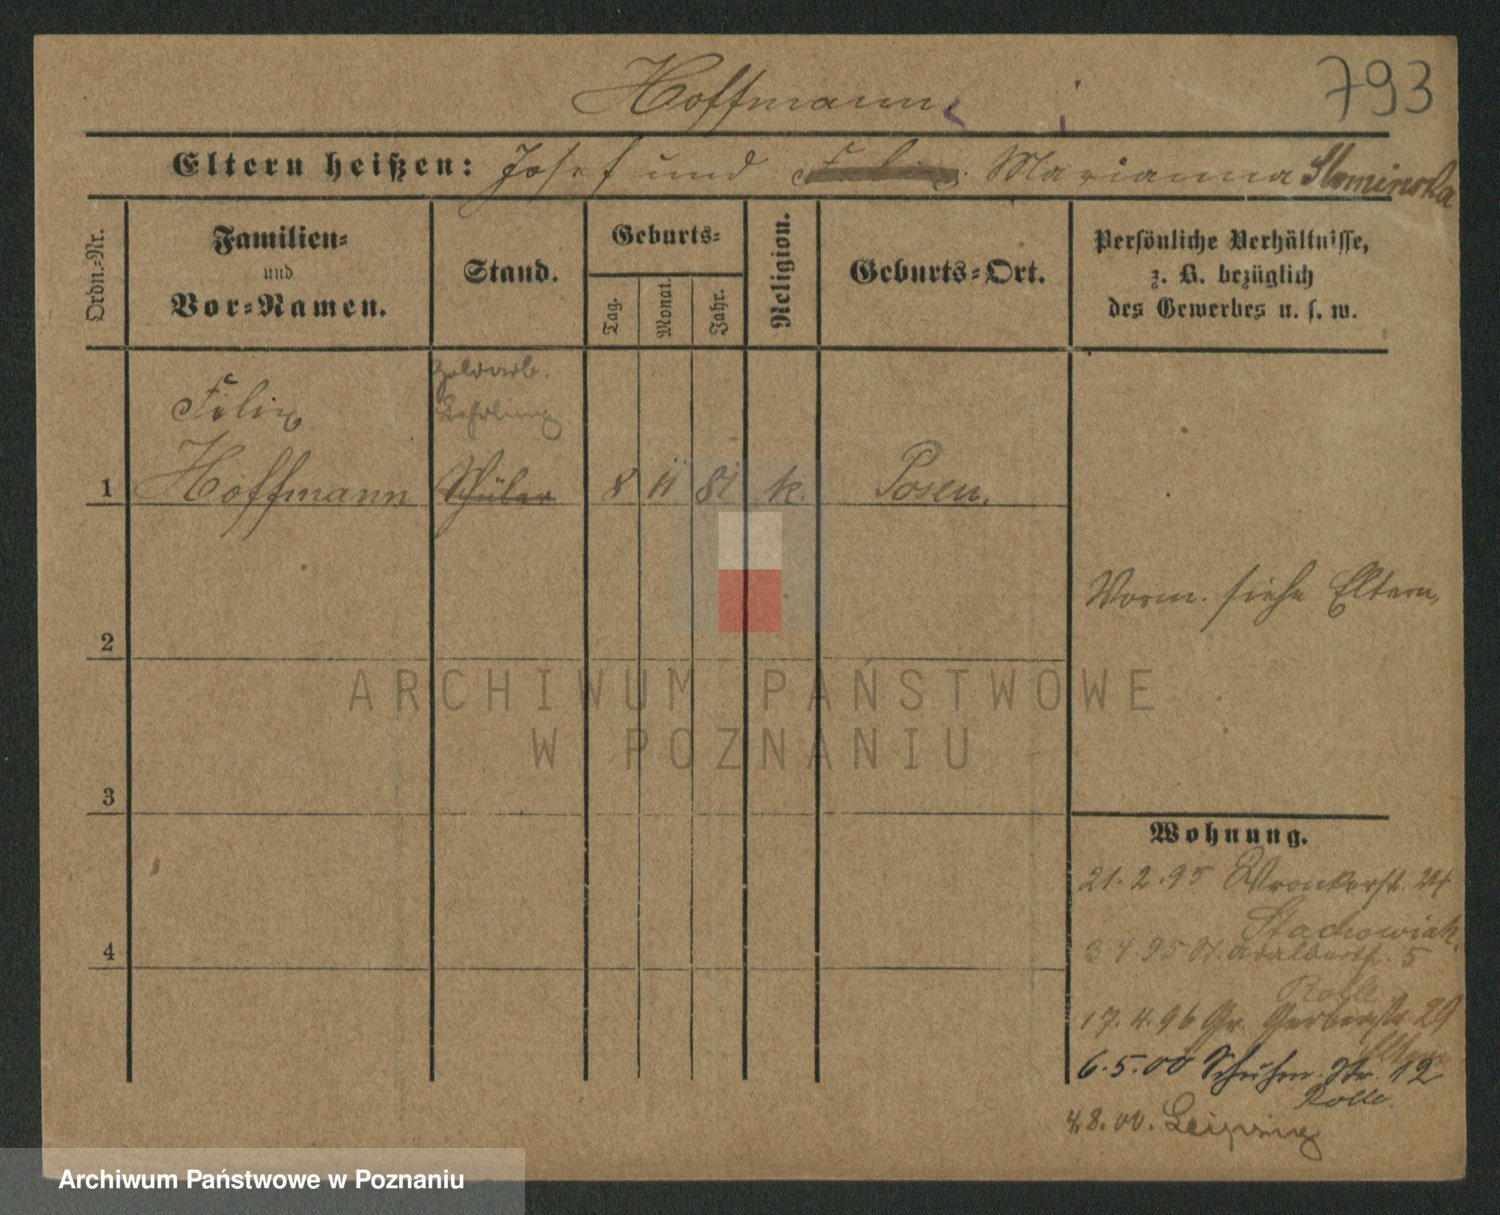 793
Hoffmann.
Eltern heißen: Josef und Felix Marianna Slominska
Ordn.-Nr.
Familien-
und
Vor-Namen.
Stand.
Geburts-
Tag.
Monat.
Jahr.
Religion.
Geburts-Ort.
Persönliche Verhältnisse,
z. B. bezüglich
des Gewerbes u. s. w.
Goldarb.
Lehrling
Felix
1 Hoffmann Schüler 8 11 81 k. Posen.
Vorm. siehe Eltern,
2
ARCHIWUM PAŃSTWOWE
W POZNANIU
3
Wohnung.
21.2.95 Wronkerst. 24
Stachowiak.
4
3 4.95 St. Adalbertst. 5
Rolle
17.4.96 Gr. Gerberstr. 29
Eltern
6.5.00 Schuhm. Str. 12
Rolle.
4.8.00. Leipzig
Archiwum Państwowe w Poznaniu